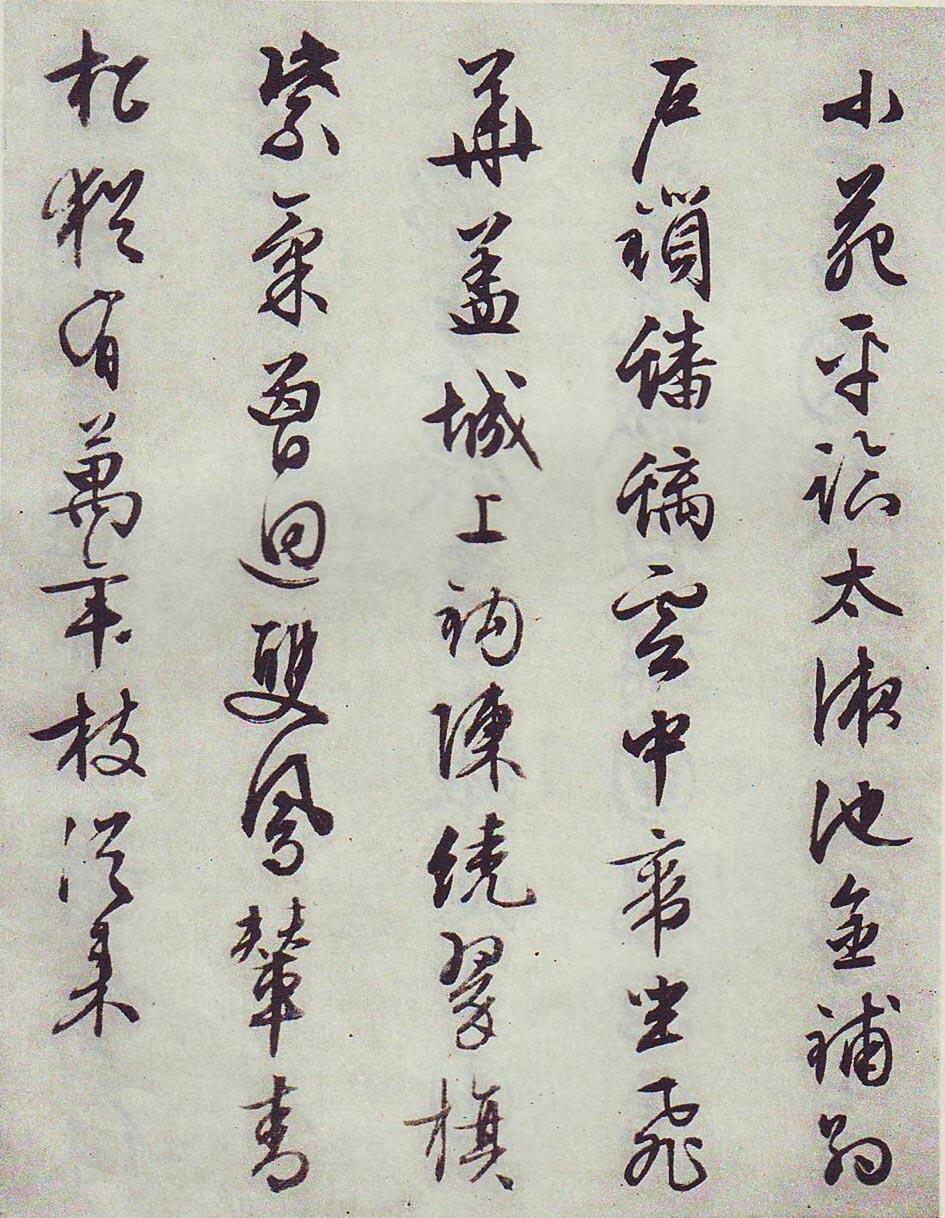 小苑平臨太液池金鋪約
戶鎖蟠螭雲中帝坐飛
華蓋城上鉤陳繞翠旗
紫氣曾迴雙鳳輦青
松猶有萬年枝從來